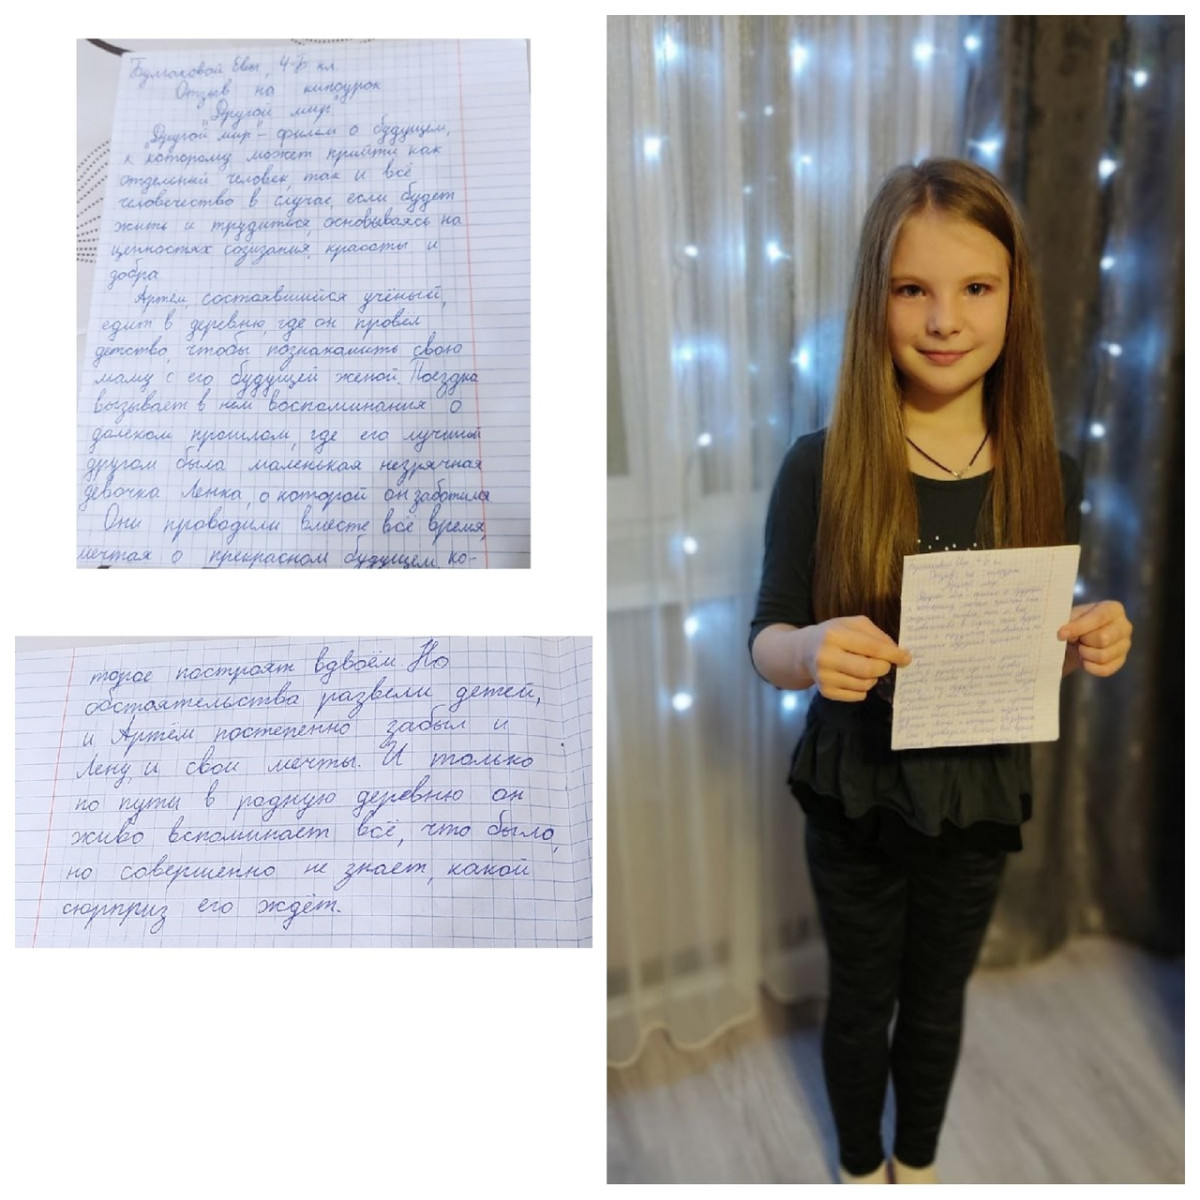 Булгаковой Евы, 4-Б кл.
Отзыв на киноурок
"Другой мир"
"Другой мир" - фильм о будущем,
к которому может прийти как
отдельный человек, так и всё
человечество в случае, если будет
жить и трудиться, основываясь на
ценностях созидания, красоты и
добра
Артём, состоявшийся учёный,
едит в деревню, где он провёл
детство, чтобы познакомить свою
маму с его будущей женой. Поездка
вызывает в нём воспоминания о
далеком прошлом, где его лучшим
другом была маленькая незрячая
девочка Ленка, о которой он заботился
Они проводили вместе всё время,
мечтая о прекрасном будущем, ко-
торое построят вдвоём. Но
обстоятельства развели детей,
и Артём постепенно забыл и
Лену, и свои мечты. И только
по пути в родную деревню он
живо вспоминает всё, что было,
но совершенно не знает, какой
сюрприз его ждёт.